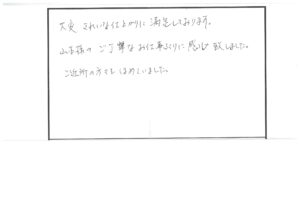 大変 きれいな仕上がりに満足しております。
ご丁寧なお仕事ぶりに感心致しました。
ご近所の方もほめていました。